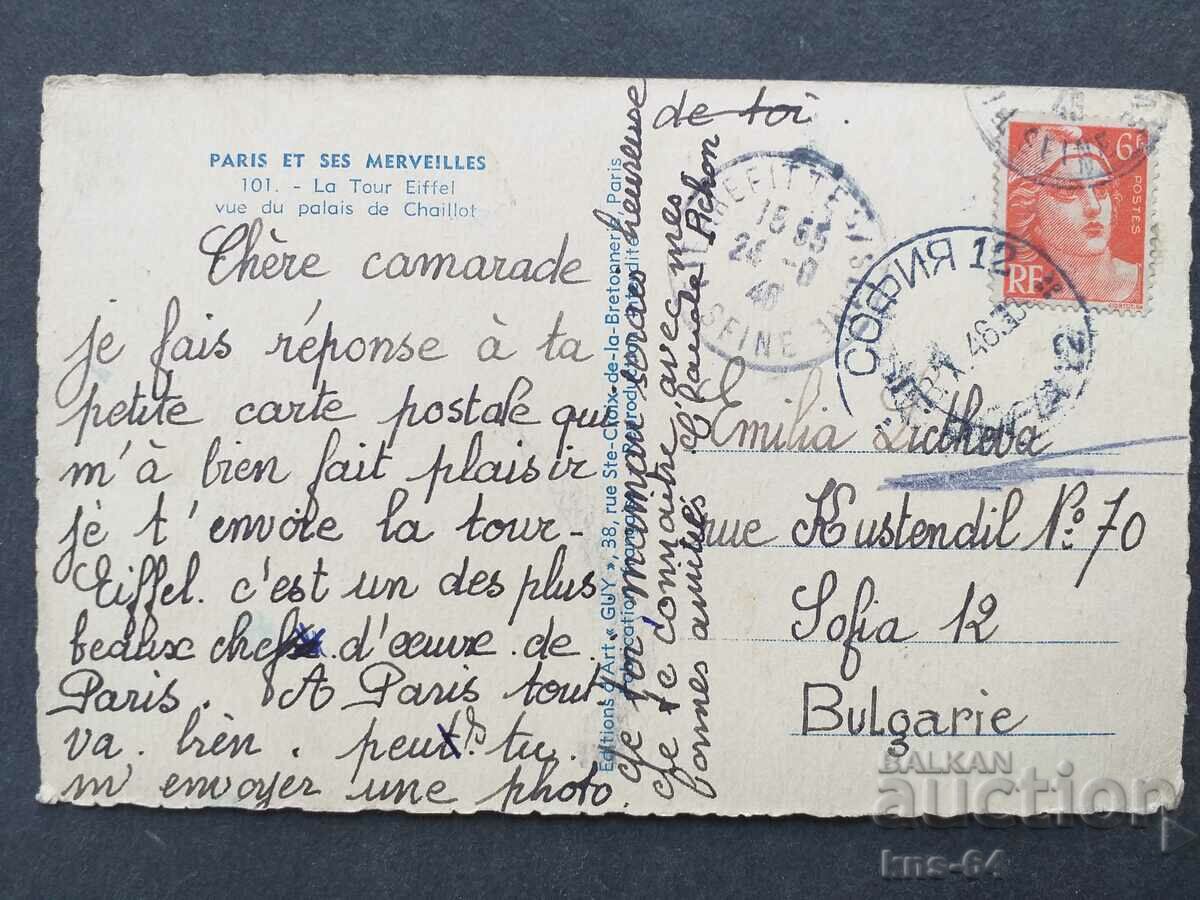 PARIS ET SES MERVEILLES
101. - La Tour Eiffel
vue du palais de Chaillot
Chère camarade
je fais réponse à ta
petite carte postale qui
m'à bien fait plaisir
je t'envoie la tour-
Eiffel. c'est un des plus
beaux chefs d'œuvre de
Paris. A Paris tout
va. bien. peux tu
m'envoyer une photo
de toi.
Je serais heureuse
de te connaître avec mes
bonnes amitiés Claude Pichon
Editions d'Art « GUY », 38, rue Ste-Croix-de-la-Bretonnerie, Paris
Fabrication française - Reproduction interdite
PIERREFITTE S/SEINE
SEINE
18 55
46
SEINE
6F
POSTES
RF
СОФИЯ 12
Emilia
rue Kustendil No. 70
Sofia 12
Bulgarie
BALKAN
auction
kns-64